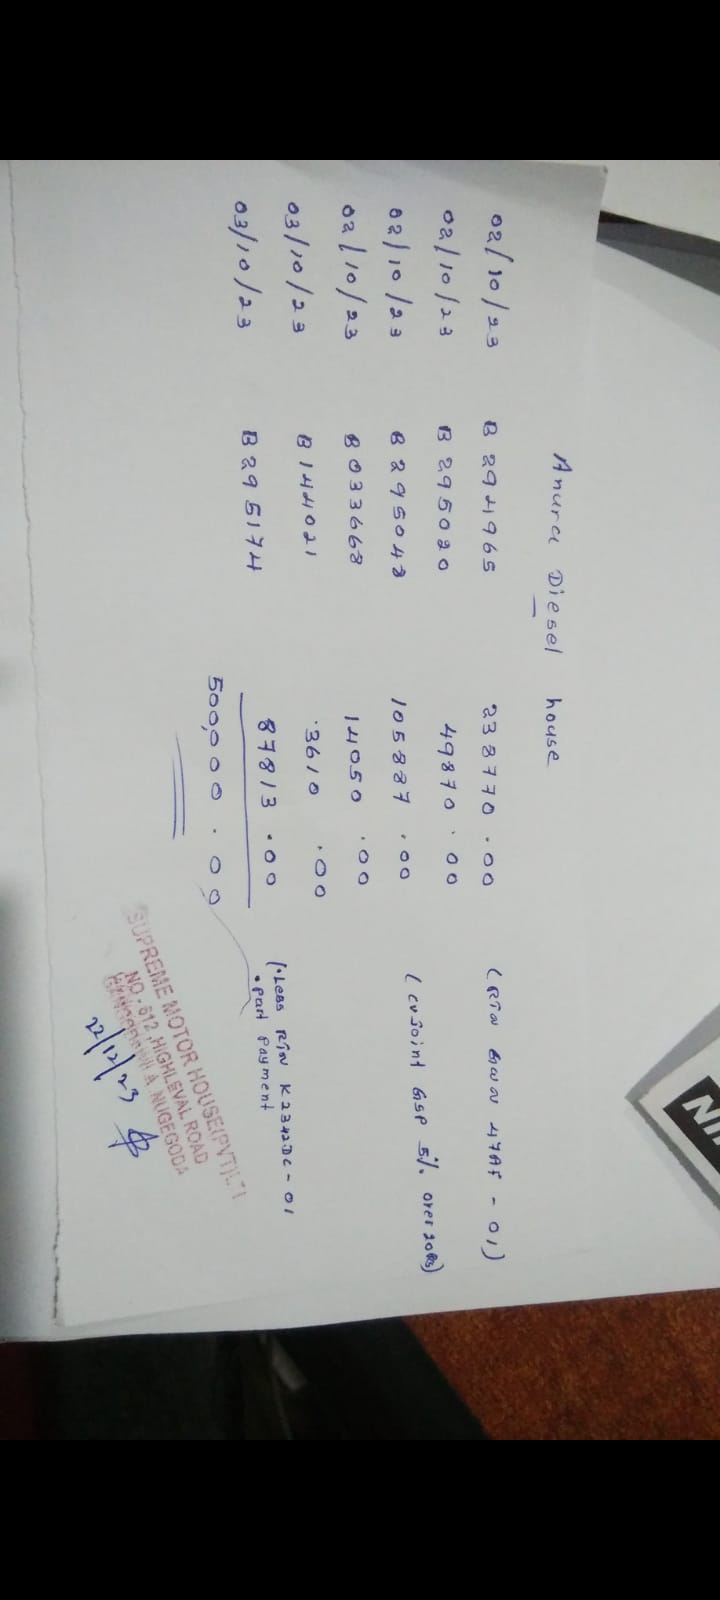 Anura Diesel house
02/10/23 B 294965 238770.00 (RTN GWN 47AF - 01)
02/10/23 B 295020 49870.00
02/10/23 B 295048 105887.00 (CV Joint GSP 5% over
02/10/23 B 033668 14050.00
03/10/23 B 144021 3610.00
03/10/23 B 295174 87813.00 (.Less RTN K2342DC - 01
. part payment
500,000.00
SUPREME MOTOR HOUSE(PVT)LT
NO - 612, HIGHLEVAL ROAD
NUGEGODA
22/12/23
NI